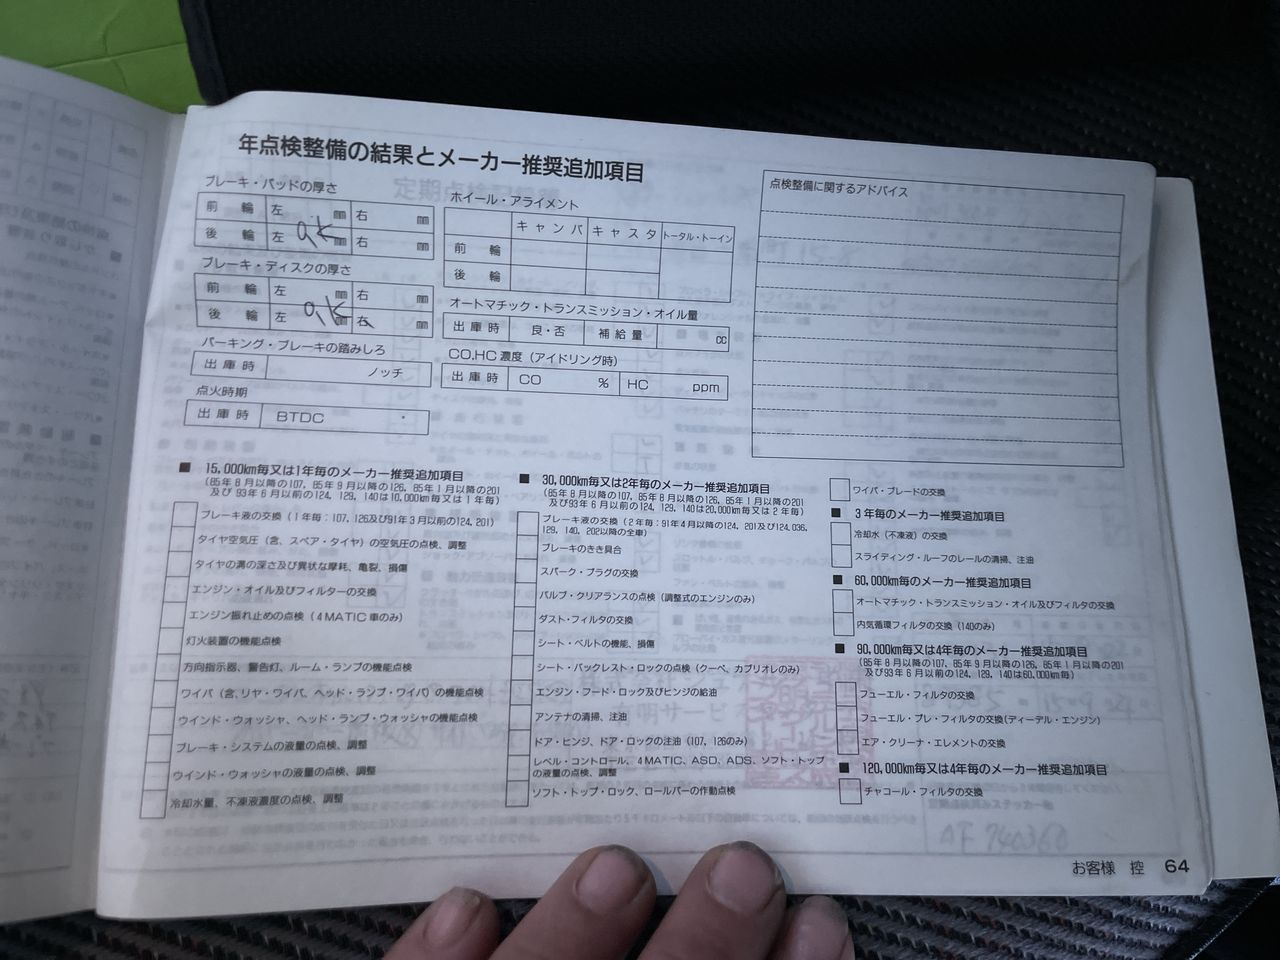 年点検整備の結果とメーカー推奨追加項目
ブレーキ・パッドの厚さ
前輪 左 mm 右 mm
後輪 左 O.K mm 右 mm
ブレーキ・ディスクの厚さ
前輪 左 mm 右 mm
後輪 左 O.K mm 右 mm
パーキング・ブレーキの踏みしろ
出庫時 ノッチ
点火時期
出庫時 BTDC °
ホイール・アライメント
キャンバ キャスタ トータル・トーイン
前輪
後輪
オートマチック・トランスミッション・オイル量
出庫時 良・否 補給量 cc
CO,HC濃度（アイドリング時）
出庫時 CO % HC ppm
点検整備に関するアドバイス
■ 15,000km毎又は1年毎のメーカー推奨追加項目
（85年8月以降の107，85年9月以降の126，85年1月以降の201
及び93年6月以前の124，129，140は10,000km毎又は1年毎）
ブレーキ液の交換（1年毎：107，126及び91年3月以前の124，201）
タイヤ空気圧（含、スペア・タイヤ）の空気圧の点検、調整
タイヤの溝の深さ及び異状な摩耗、亀裂、損傷
エンジン・オイル及びフィルターの交換
エンジン振れ止めの点検（4MATIC車のみ）
灯火装置の機能点検
方向指示器、警告灯、ルーム・ランプの機能点検
ワイパ（含、リヤ・ワイパ、ヘッド・ランプ・ワイパ）の機能点検
ウインド・ウォッシャ、ヘッド・ランプ・ウォッシャの機能点検
ブレーキ・システムの液量の点検、調整
ウインド・ウォッシャの液量の点検、調整
冷却水量、不凍液濃度の点検、調整
■ 30,000km毎又は2年毎のメーカー推奨追加項目
（85年8月以降の107，85年8月以降の126，85年1月以降の201
及び93年6月以前の124，129，140は20,000km毎又は2年毎）
ブレーキ液の交換（2年毎：91年4月以降の124，201及び124.036，
129，140，202以降の全車）
ブレーキのきき具合
スパーク・プラグの交換
バルブ・クリアランスの点検（調整式のエンジンのみ）
ダスト・フィルタの交換
シート・ベルトの機能、損傷
シート・バックレスト・ロックの点検（クーペ、カブリオレのみ）
エンジン・フード・ロック及びヒンジの給油
アンテナの清掃、注油
ドア・ヒンジ、ドア・ロックの注油（107，126のみ）
レベル・コントロール、4MATIC、ASD、ADS、ソフト・トップ
の液量の点検、調整
ソフト・トップ・ロック、ロールバーの作動点検
ワイパ・ブレードの交換
■ 3年毎のメーカー推奨追加項目
冷却水（不凍液）の交換
スライディング・ルーフのレールの清掃、注油
■ 60,000km毎のメーカー推奨追加項目
オートマチック・トランスミッション・オイル及びフィルタの交換
内気循環フィルタの交換（140のみ）
■ 90,000km毎又は4年毎のメーカー推奨追加項目
（85年8月以降の107，85年9月以降の126，85年1月以降の201
及び93年6月以前の124，129，140は60,000km毎又は4年毎）
フューエル・フィルタの交換
フューエル・プレ・フィルタの交換（ディーデル・エンジン）
エア・クリーナ・エレメントの交換
■ 120,000km毎又は4年毎のメーカー推奨追加項目
チャコール・フィルタの交換
AF 740360
お客様 控 64